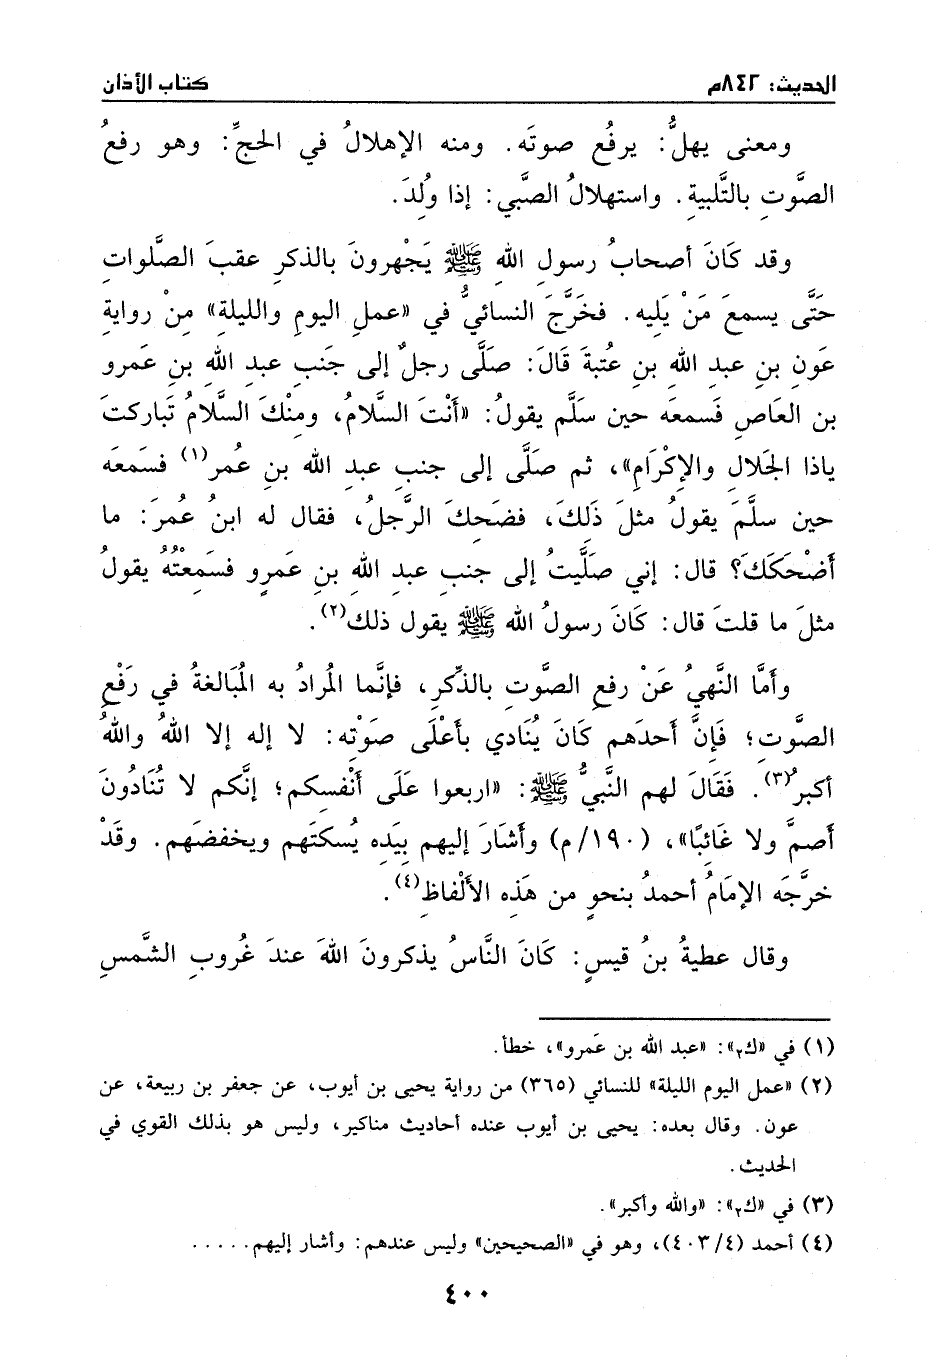 الحديث: ٨٤٢م
كتاب الأذان
ومعنى يهلُّ: يرفُع صوتَه. ومنه الإهلالُ في الحجِّ: وهو رفعُ
الصَّوتِ بالتَّلبيةِ. واستهلالُ الصَّبي: إذا وُلِدَ.
وقد كَانَ أصحابُ رسولِ اللهِ ﷺ يَجْهرونَ بالذكرِ عقبَ الصَّلواتِ
حَتَّى يسمعَ مَنْ يَليه. فخَرَّجَ النسائيُّ في «عملِ اليومِ والليلةِ» مِنْ روايةِ
عَونِ بنِ عبدِ اللهِ بنِ عُتبةَ قَالَ: صلَّى رجلٌ إلى جَنبِ عبدِ اللهِ بنِ عَمرو
بن العَاصِ فَسمعَه حين سَلَّم يقولُ: «أَنْتَ السَّلامُ، ومنْكَ السَّلامُ تَباركتَ
ياذا الجَلالِ والإِكْرَامِ»، ثم صَلَّى إلى جنبِ عبدِ اللهِ بنِ عُمر(١) فسَمِعَه
حين سلَّمَ يقولُ مثلَ ذَلكَ، فضَحِكَ الرَّجلُ، فقال له ابنُ عُمرَ: ما
أضْحَكَكَ؟ قال: إني صلَّيتُ إلى جنبِ عبدِ اللهِ بنِ عَمرٍو فسَمِعْتُهُ يقولُ
مثلَ ما قلتَ قال: كَانَ رسولُ اللهِ ﷺ يقول ذلك(٢).
وأمَّا النَّهيُ عَنْ رفعِ الصَّوتِ بالذِّكرِ، فإنَّما المُرادُ به المُبَالغةُ في رَفْعِ
الصَّوتِ؛ فإنَّ أحدَهم كَانَ يُنَادي بأعْلَى صَوْتِه: لا إله إلا اللهُ واللهُ
أكبرُ(٣). فَقَالَ لهم النَّبيُّ ﷺ: «اربعوا عَلَى أَنْفسِكم؛ إنَّكم لا تُنَادُونَ
أصمَّ ولا غَائبًا»، (١٩٠/م) وأشَارَ إليهم بيَدِه يُسكتَهم ويخفضَهم. وقَدْ
خرَّجَه الإمَامُ أحمدُ بنحوٍ من هَذِه الأَلْفاظِ(٤).
وقال عطيةُ بنُ قيسٍ: كَانَ النَّاسُ يذكرونَ اللهَ عندَ غُروبِ الشَّمسِ
(١) في «ك٢»: «عبد الله بن عَمرو»، خطأ.
(٢) «عمل اليوم الليلة» للنسائي (٣٦٥) من رواية يحيى بن أيوب، عن جعفر بن ربيعة، عن
عون. وقال بعده: يحيى بن أيوب عنده أحاديث مناكير، وليس هو بذلك القوي في
الحديث.
(٣) في «ك٢»: «والله وأكبر».
(٤) أحمد (٤٠٣/٤)، وهو في «الصحيحين» وليس عندهم: وأشار إليهم.....
٤٠٠